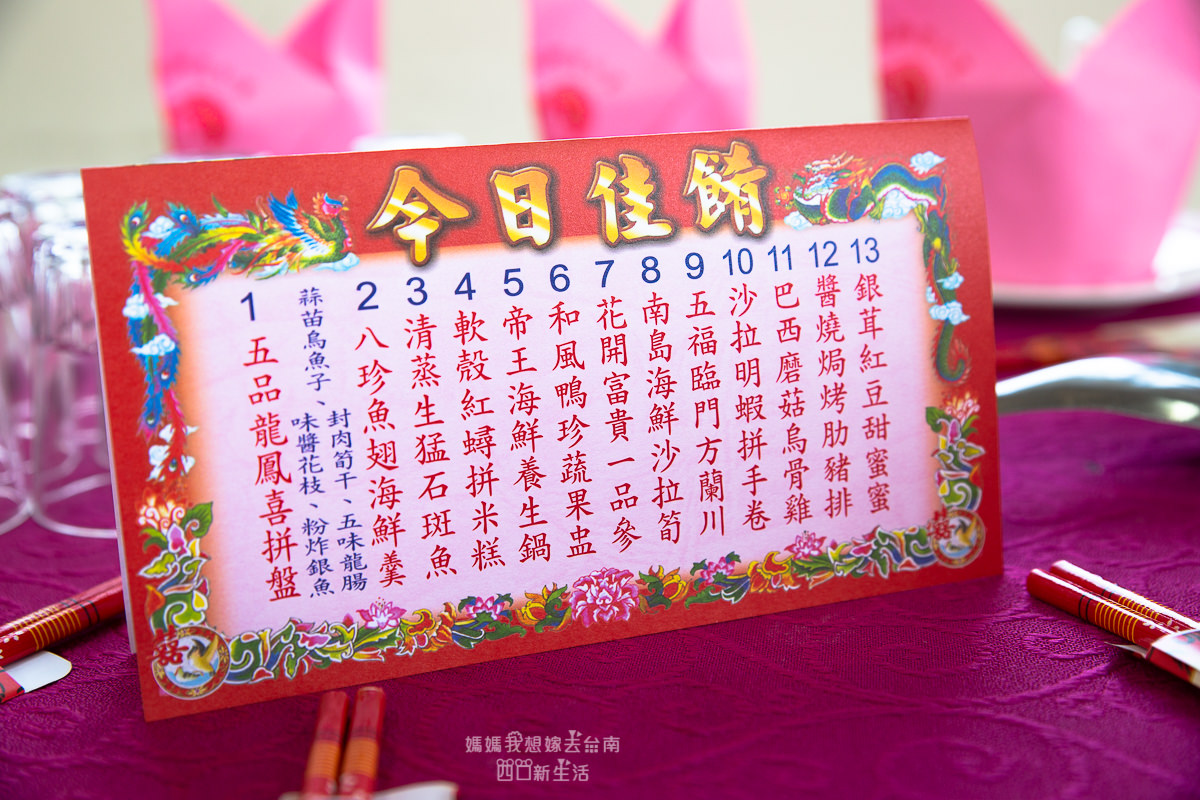 今日佳餚
1 五品龍鳳喜拼盤
蒜苗烏魚子、封肉筍干、五味龍腸
味醬花枝、粉炸銀魚
2 八珍魚翅海鮮羹
3 清蒸生猛石斑魚
4 軟殼紅蟳拼米糕
5 帝王海鮮養生鍋
6 和風鴨珍蔬果盅
7 花開富貴一品參
8 南島海鮮沙拉筍
9 五福臨門方蘭川
10 沙拉明蝦拼手卷
11 巴西磨菇烏骨雞
12 醬燒焗烤肋豬排
13 銀茸紅豆甜蜜蜜
媽媽我想嫁去台南
西口新生活